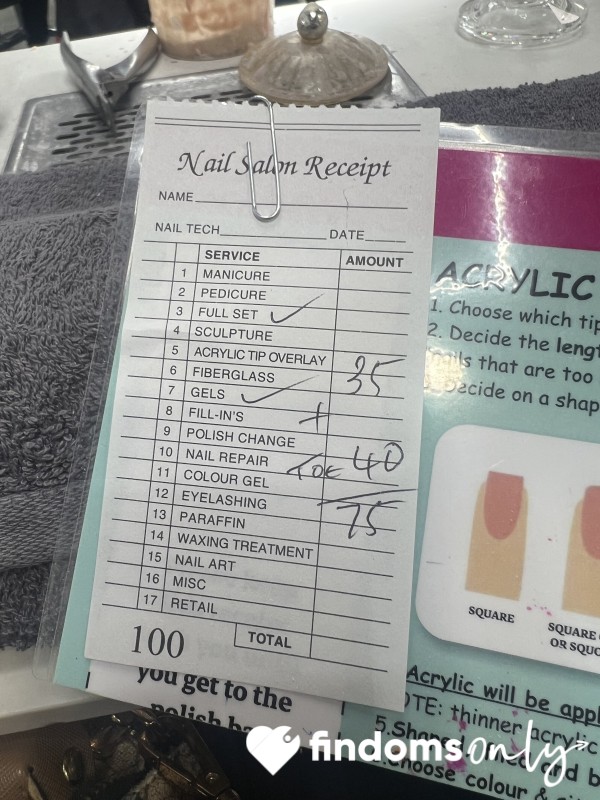 Nail Salon Receipt
NAME
NAIL TECH DATE
SERVICE AMOUNT
1 MANICURE
2 PEDICURE
3 FULL SET ✓
4 SCULPTURE
5 ACRYLIC TIP OVERLAY
6 FIBERGLASS 35
7 GELS ✓
8 FILL-IN'S +
9 POLISH CHANGE
10 NAIL REPAIR TOE 40
11 COLOUR GEL
12 EYELASHING 75
13 PARAFFIN
14 WAXING TREATMENT
15 NAIL ART
16 MISC
17 RETAIL
100 TOTAL
you get to the
polish
ACRYLIC
1. Choose which tip
2. Decide the lengt
that are too
Decide on a shap
SQUARE
SQUARE
OR SQUO
Acrylic will be appl
OTE: thinner acrylic
5.Shap
choose colour &
findomsonly